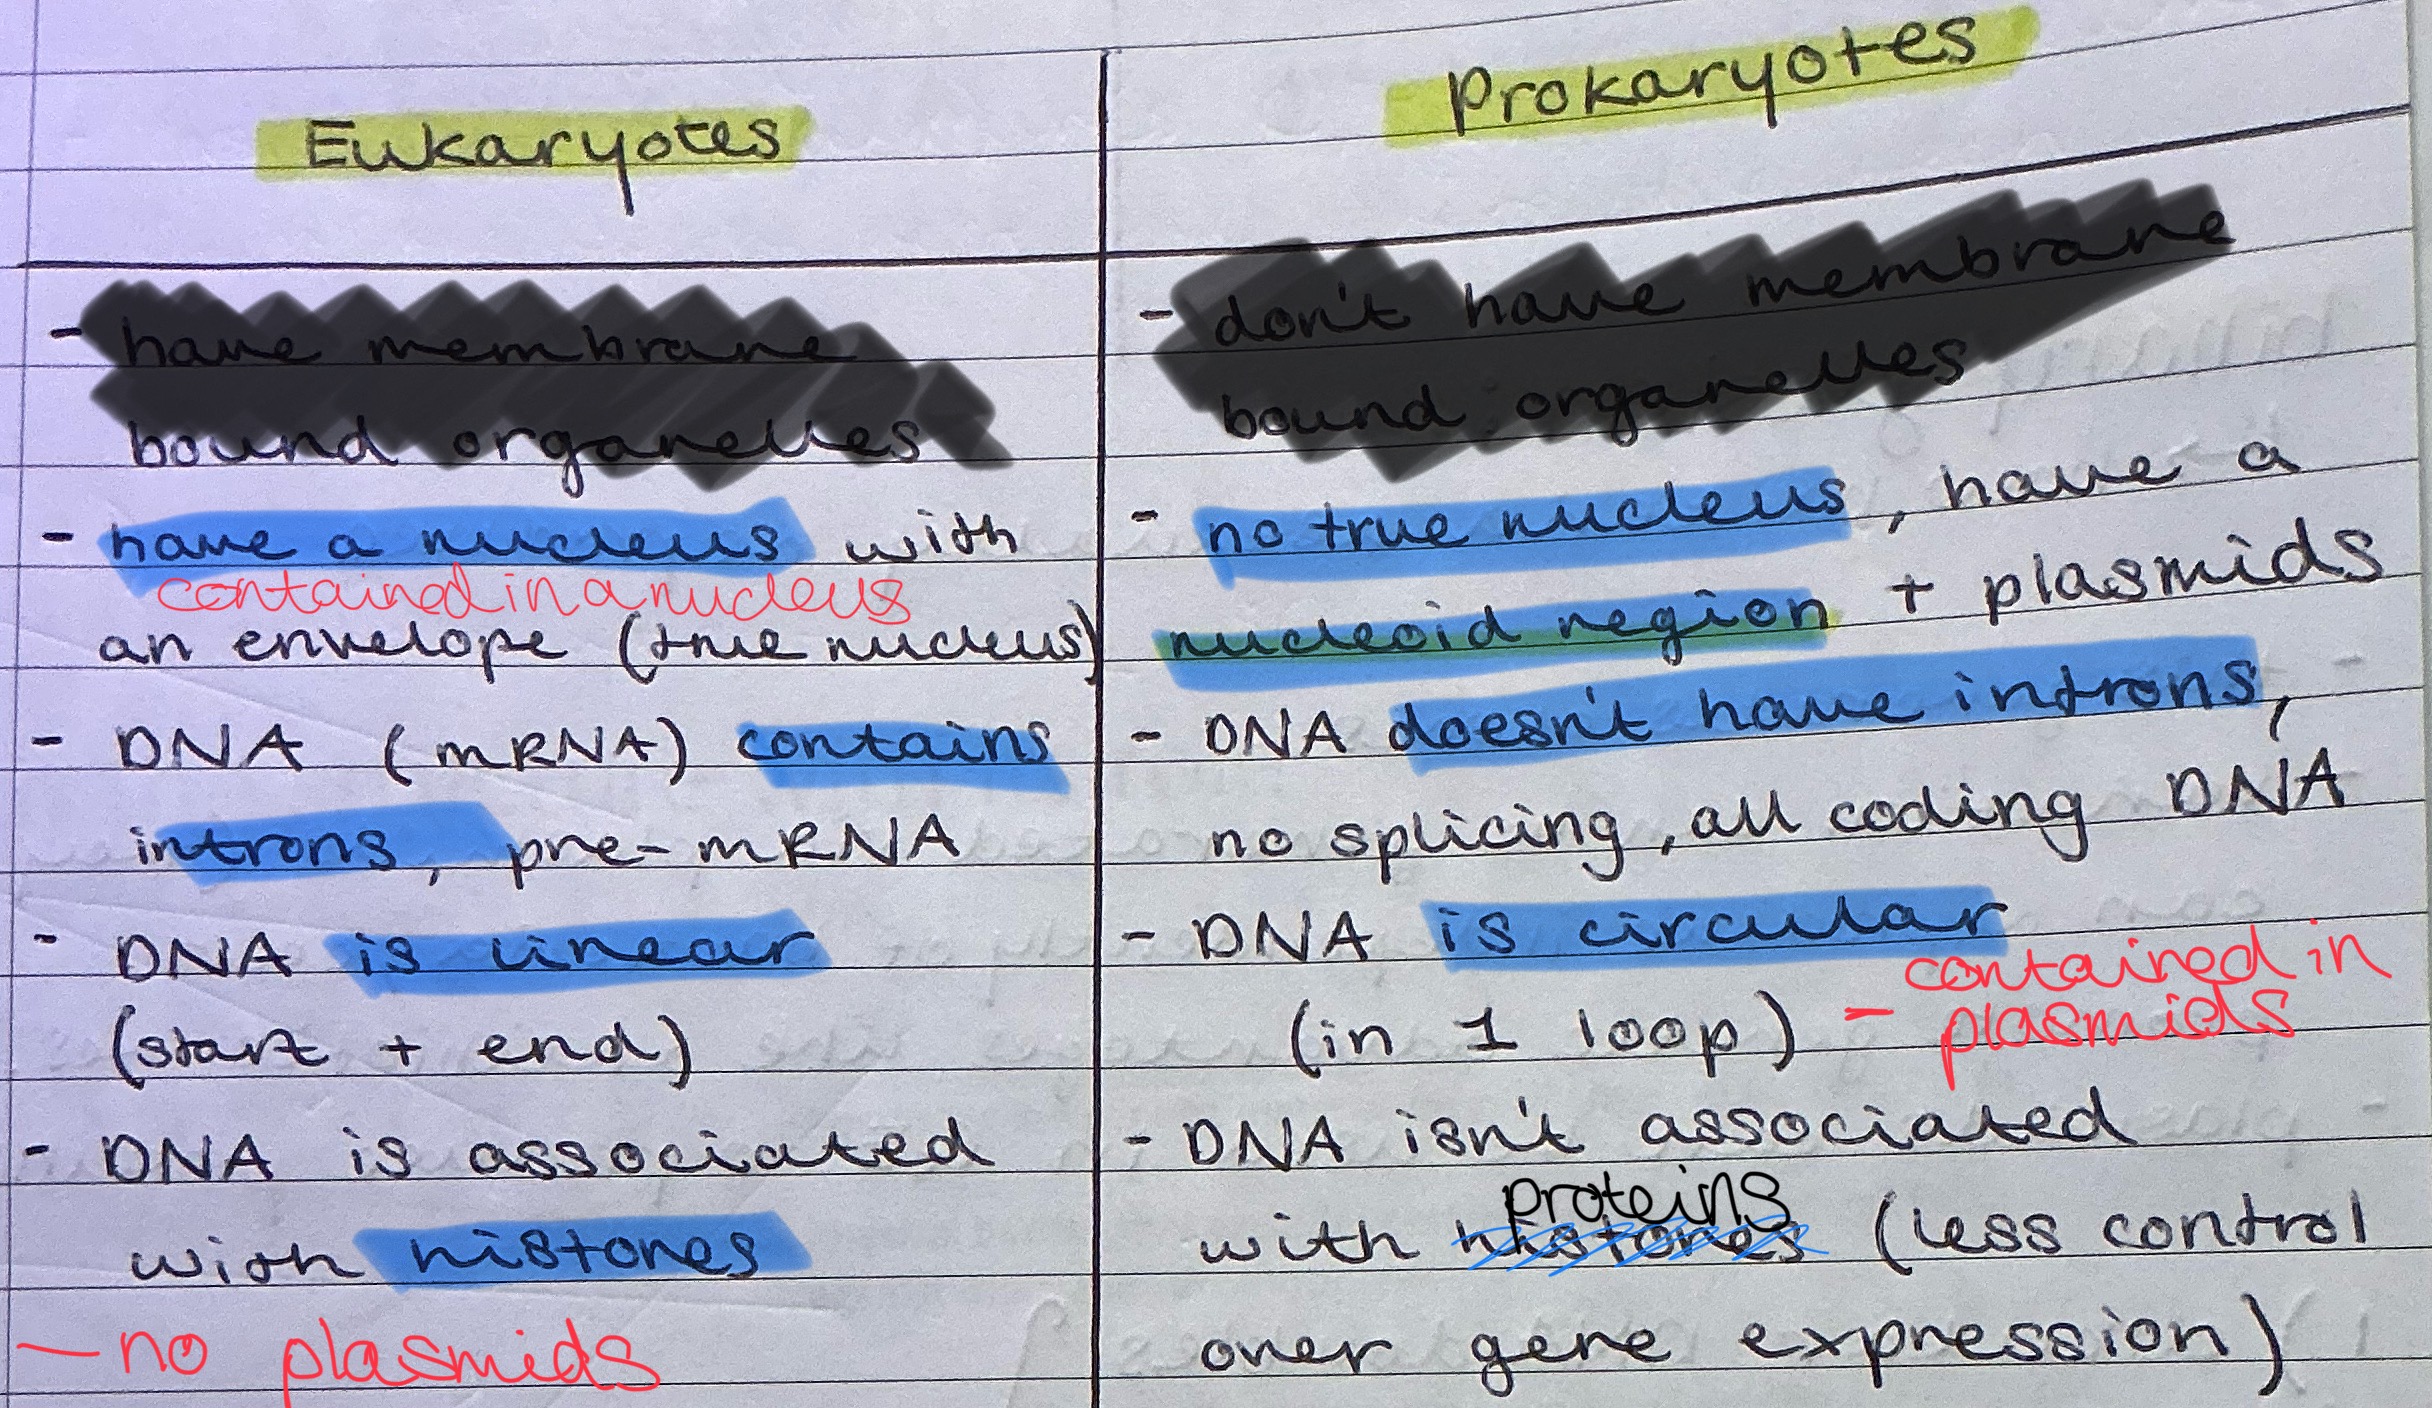 Eukaryotes
- have membrane
bound organelles
- have a nucleus with
contained in a nucleus
an envelope (true nucleus)
- DNA (mRNA) contains
introns, pre-mRNA
- DNA is linear
(start + end)
- DNA is associated
with histones
- no plasmids
Prokaryotes
- don't have membrane
bound organelles
- no true nucleus, have a
nucleoid region + plasmids
- DNA doesn't have introns,
no splicing, all coding DNA
- DNA is circular
(in 1 loop) - contained in
plasmids
- DNA isn't associated
proteins
with histones (less control
over gene expression)